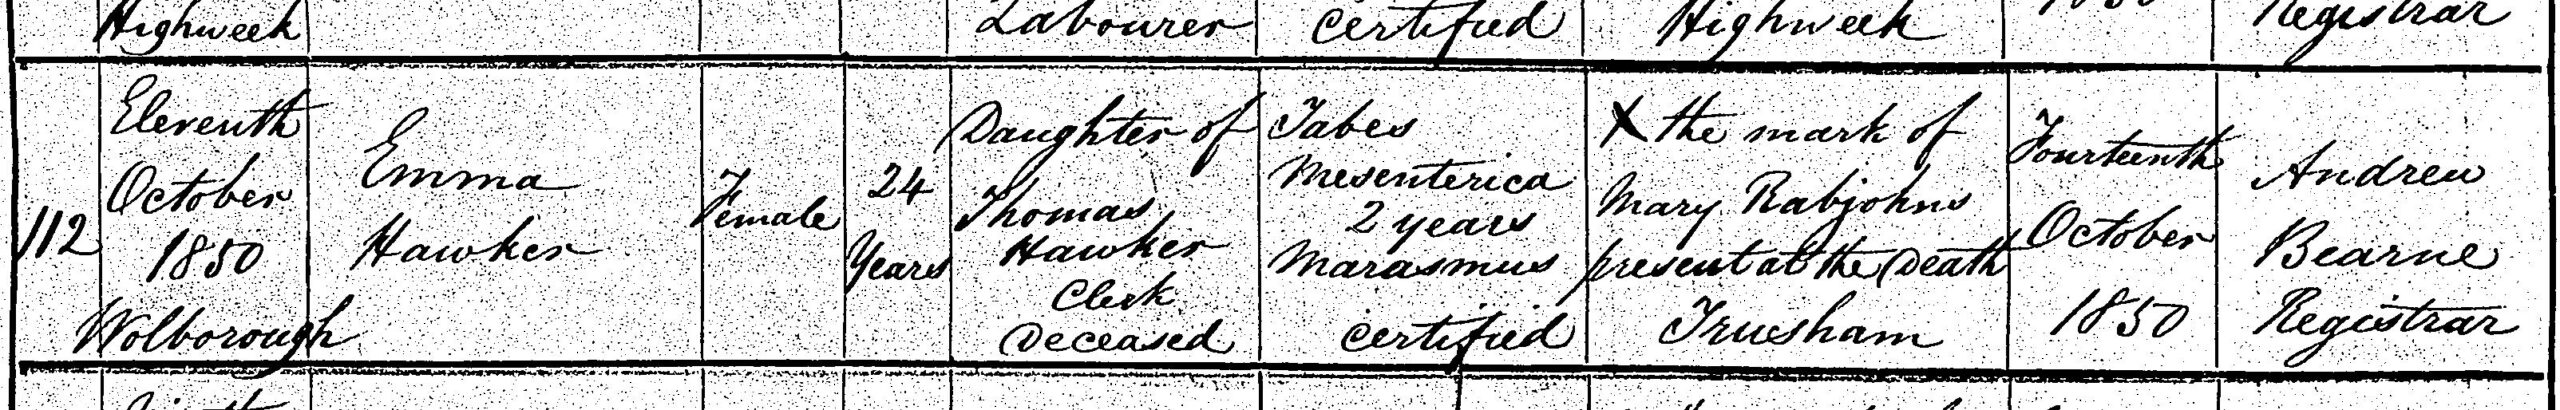 Highweek
Labourer
Certified
Highweek
Registrar
112
Eleventh
October
1850
Wolborough
Emma
Hawker
Female
24
Years
Daughter of
Thomas
Hawker
Clerk
Deceased
Tabes
Mesenterica
2 years
Marasmus
Certified
X the mark of
Mary Rabjohns
present at the Death
Trusham
Fourteenth
October
1850
Andrew
Bearne
Registrar